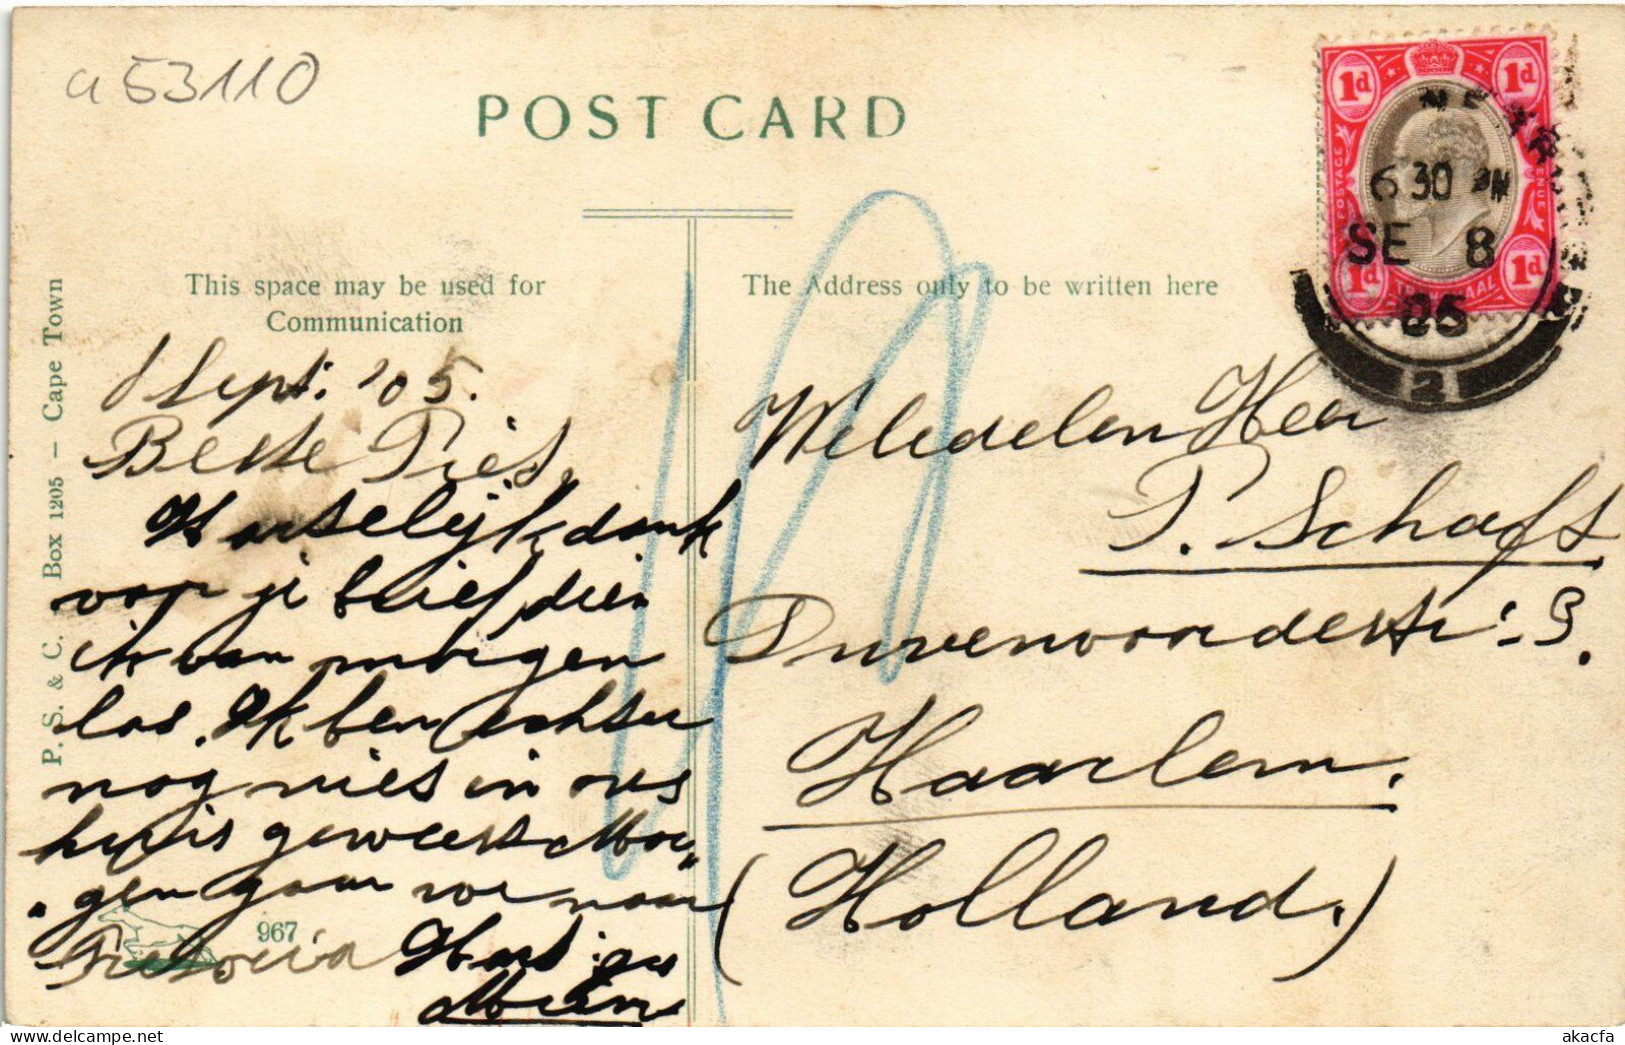 a 53110
POST CARD
This space may be used for
Communication
The Address only to be written here
P. S. & C. Box 1205 – Cape Town
Sept. '05.
Beste Piet,
Hartelijk dank
voor je brief, dien
ik van morgen
las. Ik ben echter
nog niet in ons
huis geweest. Mor„
„gen gaan we naar
Pretoria
967
1d 1d
POSTAGE
REVENUE
6 30 PM
SE 8
05
2
1d 1d
TRANSVAAL
WelEdelen Heer
P. Schaft
Duvenvoordestr: 3.
Haarlem.
(Holland.)
akacfa